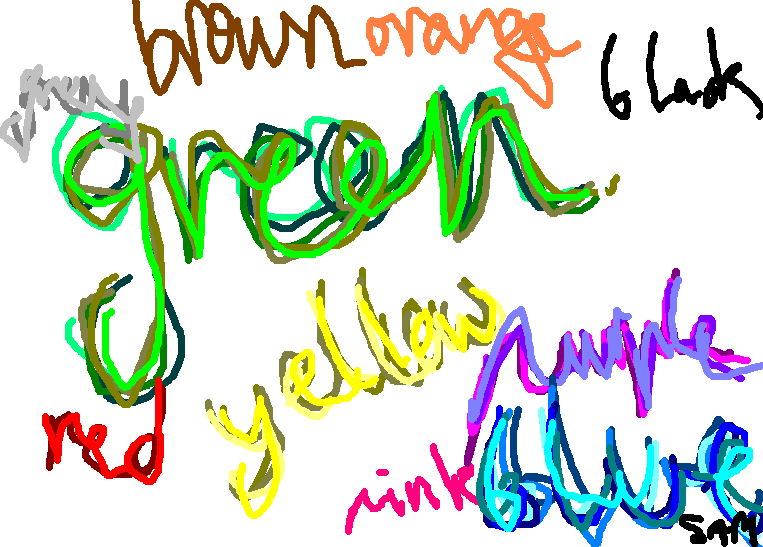 brown orange
black
grey
green
yellow
purple
red
pink
blue
SAM